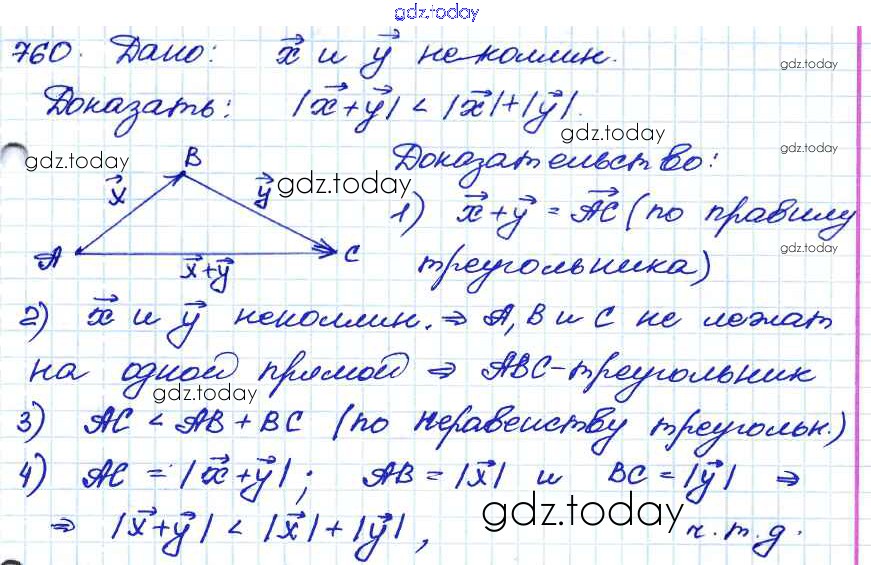 gdz.today
760. Дано: x⃗ и y⃗ неколлин.
gdz.today
Доказать: |x⃗+y⃗| < |x⃗|+|y⃗|.
gdz.today
gdz.today
gdz.today
B
Доказательство:
x⃗
y⃗
gdz.today
1) x⃗+y⃗ = AC⃗ (по правилу
A
C
x⃗+y⃗
треугольника)
gdz.today
2) x⃗ и y⃗ неколлин. ⇒ A, B и C не лежат
на одной прямой ⇒ ABC-треугольник
gdz.today
3) AC < AB + BC (по неравенству треугольн.)
4) AC = |x⃗+y⃗|; AB = |x⃗| и BC = |y⃗| ⇒
⇒ |x⃗+y⃗| < |x⃗| + |y⃗|, ч.т.д.
gdz.today